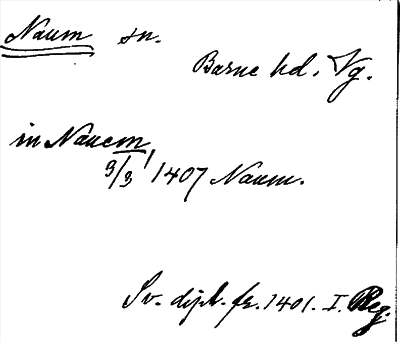 Naum sn.
Barne hd. Vg.
in Nauem
3/3 1407 Naum.
Sv. dipl. fr. 1401. I. Reg.